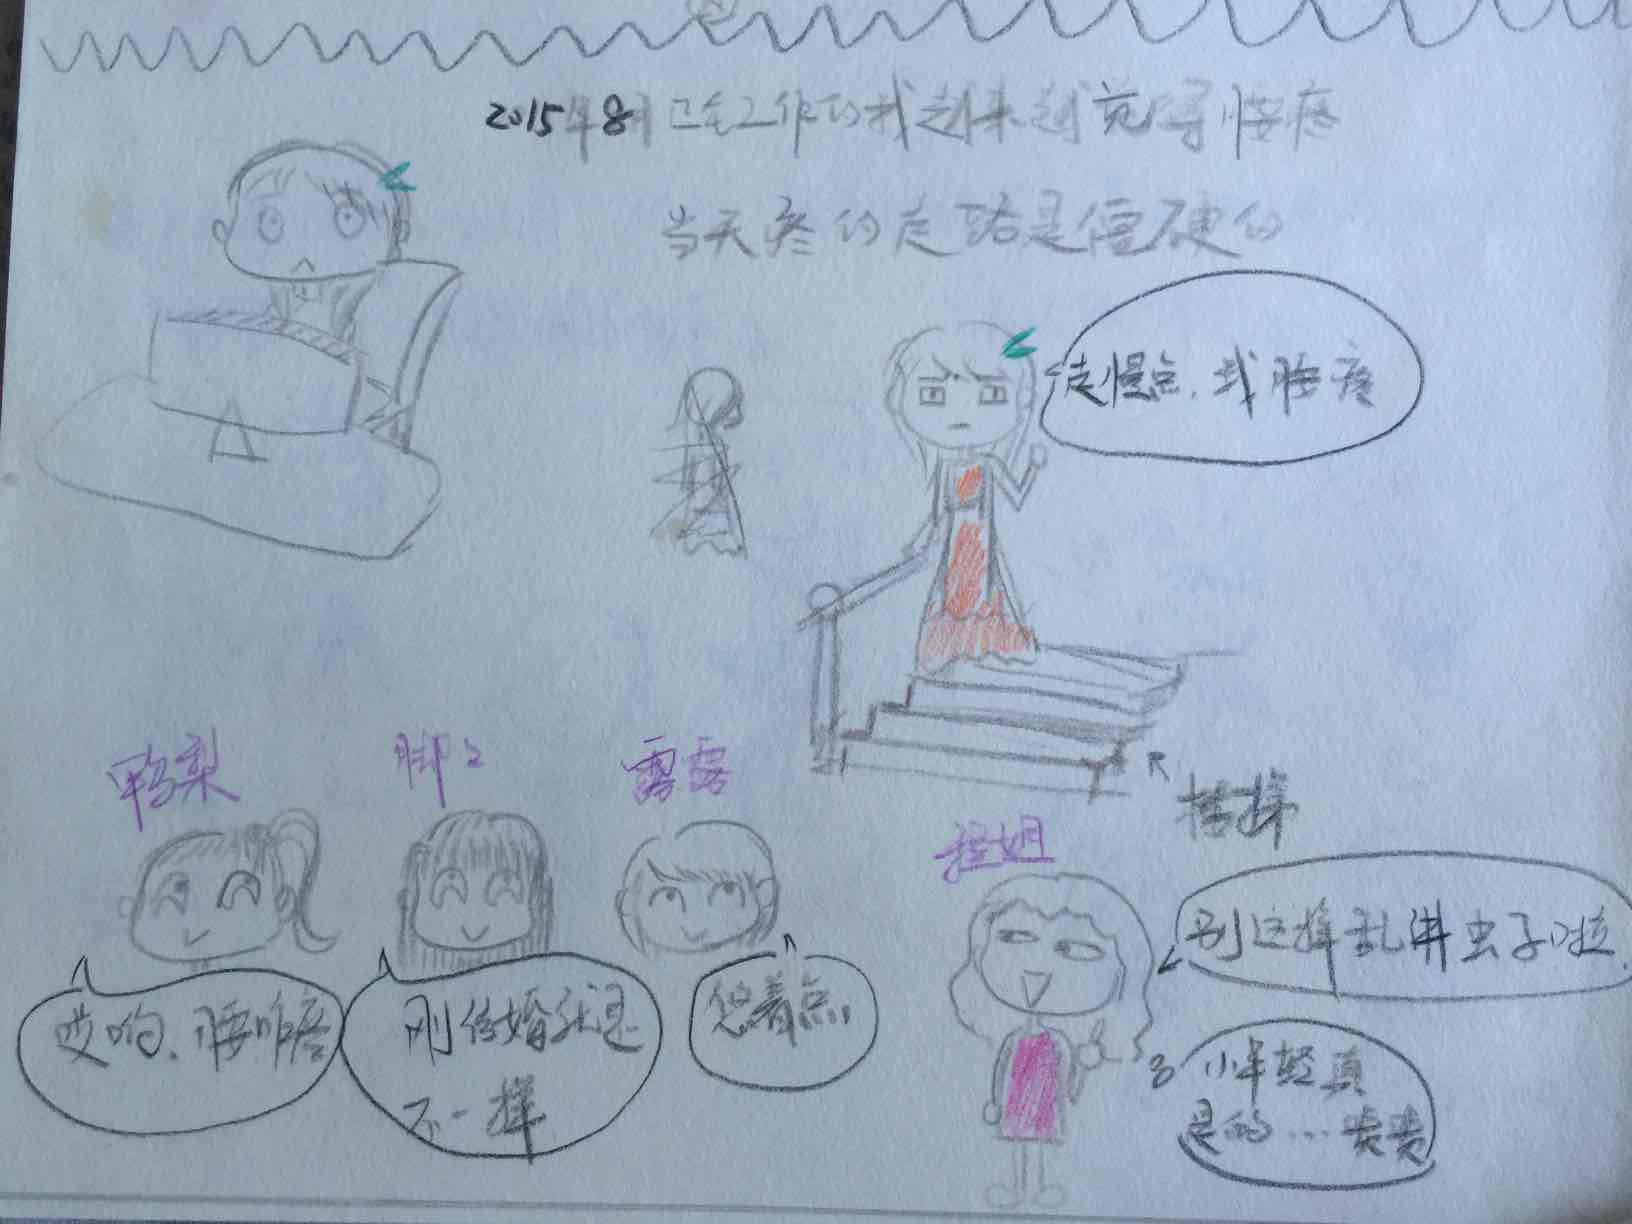 2015年8月已在工作的我越来越觉得腰疼
当天疼的走路是僵硬的
走慢点，我腰疼
鸭梨
脚丫
露露
程姐
楼梯
哎哟，腰咋疼
刚结婚就是
不一样
悠着点，
别这样乱讲虫子啦
小年轻真
是的…啧啧